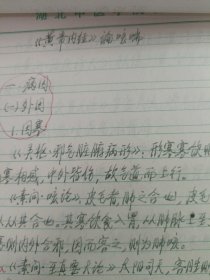 湖北中医学院
《黄帝内经》论咳嗽
一、病因
(一)外因
1.因寒
《灵枢·邪气脏腑病形》:形寒寒饮则
寒相感,中外皆伤,故气逆而上行。
《素问·咳论》:皮毛者,肺之合也,皮毛
以从其合也。其寒饮食入胃,从肺脉上至
则内外合邪,因而客之,则为肺咳。
《素问·至真要大论》太阳司天,客胜则